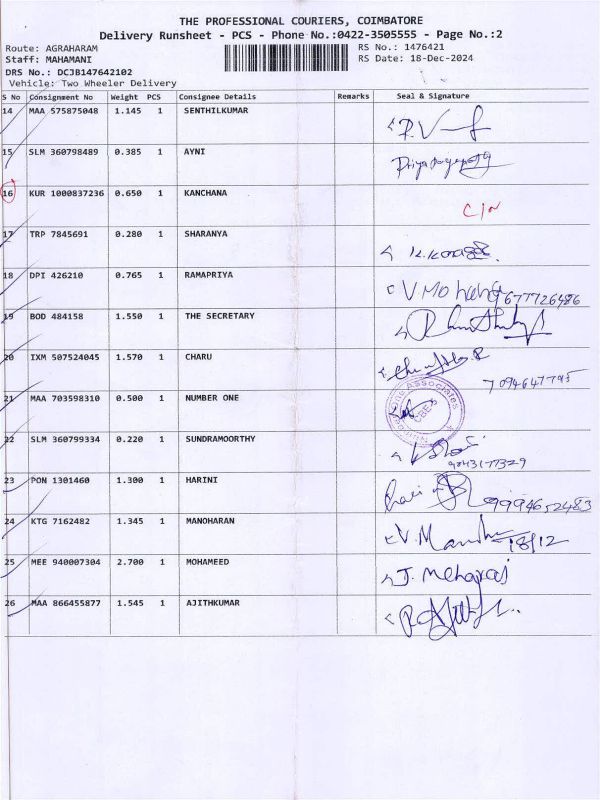 THE PROFESSIONAL COURIERS, COIMBATORE
Delivery Runsheet - PCS - Phone No.:0422-3505555 - Page No.:2
Route: AGRAHARAM RS No.: 1476421
Staff: MAHAMANI RS Date: 18-Dec-2024
DRS No.: DCJB147642102
Vehicle: Two Wheeler Delivery
S No Consignment No Weight PCS Consignee Details Remarks Seal & Signature
14 MAA 575875048 1.145 1 SENTHILKUMAR
15 SLM 360798489 0.385 1 AYNI
16 KUR 1000837236 0.650 1 KANCHANA C/N
17 TRP 7845691 0.280 1 SHARANYA
18 DPI 426210 0.765 1 RAMAPRIYA V Mohan 9677726486
19 BOD 484158 1.550 1 THE SECRETARY
20 IXM 507524045 1.570 1 CHARU
21 MAA 703598310 0.500 1 NUMBER ONE One Associates
22 SLM 360799334 0.220 1 SUNDRAMOORTHY
9043177329
23 PON 1301460 1.300 1 HARINI 9994652483
24 KTG 7162482 1.345 1 MANOHARAN 18/12
25 MEE 940007304 2.700 1 MOHAMEED
26 MAA 866455877 1.545 1 AJITHKUMAR